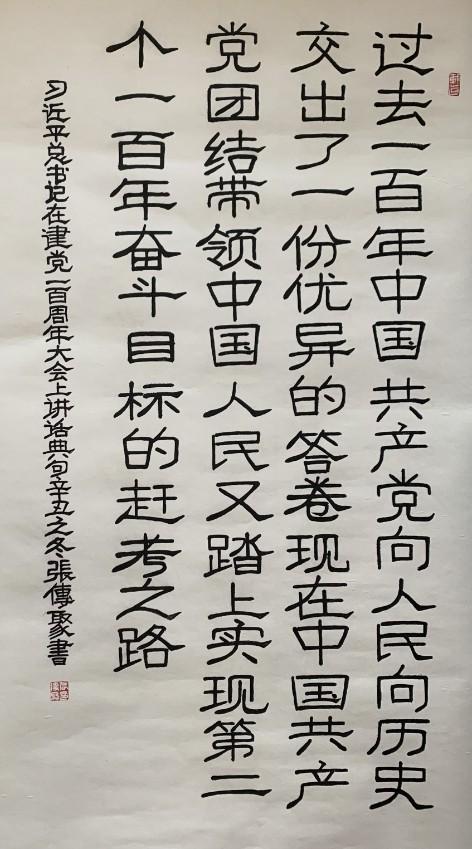 过去一百年中国共产党向人民向历史
交出了一份优异的答卷现在中国共产
党团结带领中国人民又踏上实现第二
个一百年奋斗目标的赶考之路
习近平总书记在建党一百周年大会上讲话典句辛丑之冬張傳聚書